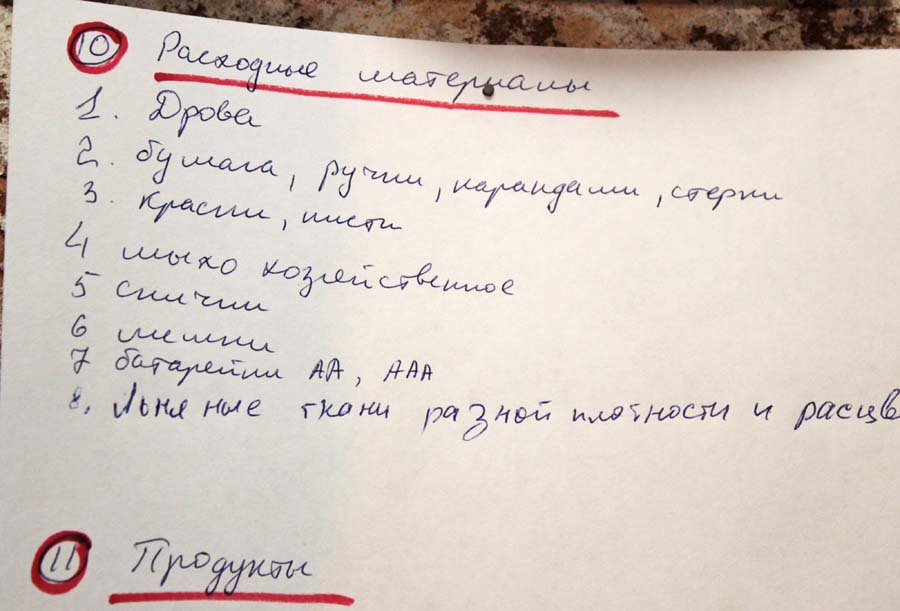 10 Расходные материалы
1. Дрова
2. бумага, ручки, карандаши, стерки
3. краски, кисти
4 мыло хозяйственное
5 спички
6 мешки
7 батарейки АА, ААА
8. Льняные ткани разной плотности и расцв
11 Продукты